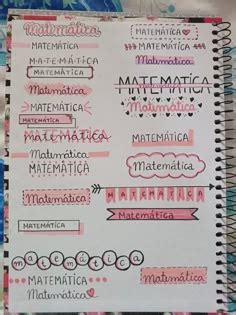 Matemática
MATEMÁTICA
MATEMÁTICA
MATEMÁTICA
Matemática
MATEMÁTICA
MATEMÁTICA
MATEMÁTICA
Matemática
MATEMÁTICA
Matemática
MATEMÁTICA
MATEMÁTICA
matemática
MATEMÁTICA
Matemática
MATEMÁTICA
MATEMÁTICA
Matemática
MATEMÁTICA
Matemática
MATEMÁTICA
Matemática
Matemática
MATEMÁTICA
MATEMÁTICA
Matemática
MATEMÁTICA